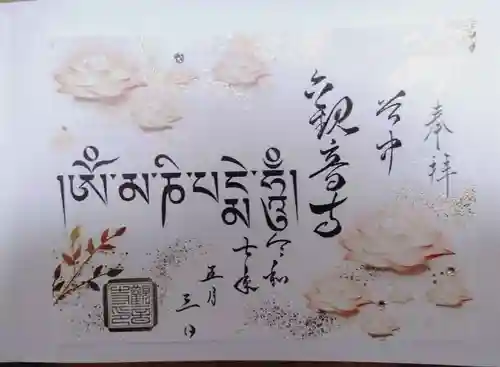 奉拝
谷中
六観音寺
།ཨོཾ་མ་ཎི་པདྨེ་ཧཱུྃ།
令和
七年
五月
三日